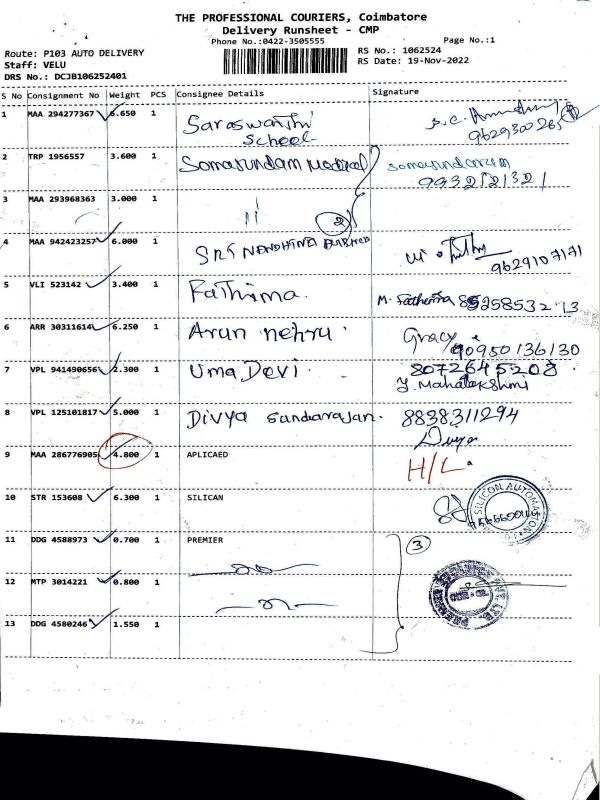 THE PROFESSIONAL COURIERS, Coimbatore
Delivery Runsheet - CMP
Phone No.:0422-3505555
Page No.:1
Route: P103 AUTO DELIVERY
RS No.: 1062524
Staff: VELU
RS Date: 19-Nov-2022
DRS No.: DCJB106252401
S No Consignment No Weight PCS Consignee Details Signature
1 MAA 294277367 6.650 1 Saraswathi School 9629300265
2 TRP 1956557 3.600 1 Somasundam Medical Somasundaram
3 MAA 293968363 3.000 1 〃 2
4 MAA 942423257 6.000 1 SRI NANDHINI 9629107171
5 VLI 523142 3.400 1 Fathima. M. Fathima
6 ARR 30311614 6.250 1 Arun nehru. Gracy 90950136130
7 VPL 941490656 2.300 1 Uma Devi. 8072645208
Y. Mahalakshmi
8 VPL 125101817 5.000 1 Divya Sundarajan. 8838311294
Divya
9 MAA 286776905 4.800 1 APLICAED H/L
10 STR 153608 6.300 1 SILICAN SILICON AUTOMATION
11 DDG 4588973 0.700 1 PREMIER 3
12 MTP 3014221 0.800 1
13 DDG 4580246 1.550 1